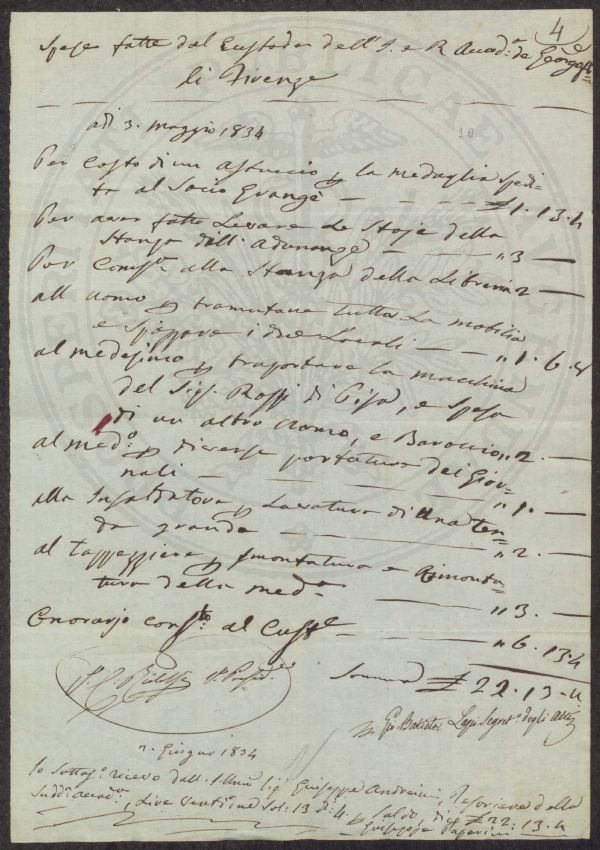 4
Spese fatte dal Custode dell' I. e R. Accad:a de Georgofi
li di Firenze
adi 3. Maggio 1834
10
Per costo di un astuccio p la medaglia spedi-
ta al Socio Grangè — — £ 1. 13. 4
Per aver fatto Levare Le Stoje della
Stanza dell' Adunanze — — „ 3 —
Per Comp:e alla Stanza della Libreria 2 —
all uomo p tramutare tutta La mobilia
e spazzare i due Locali — — „ 1. 6. 8
al medesimo p trasportare la macchina
del Sig. Rossi di Pisa, e spesa
di un altro uomo, e Baroccio „ 2. —
al med:o p diverse portature dei Gior-
nali — — — „ 1. —
alla Lavatura di una ten-
da grande — — „ 2. —
al tappezziere p smontatura e rimonta-
tura della med:a — „ 3. —
Onorario cons:to al Cust:e — „ 6. 13. 4
Somma £ 22. 13. 4
Gio Batista Lapi Segret:o degli Atti
2. Giugno 1834
Io Sottos:o ricevo dall' Illmo Sig Giuseppe Andreini, Tesoriere della
Sudd:a accad:a, Lire Ventidue Sol: 13. d: 4. p Saldo, dico £ 22: 13. 4
Giuseppe